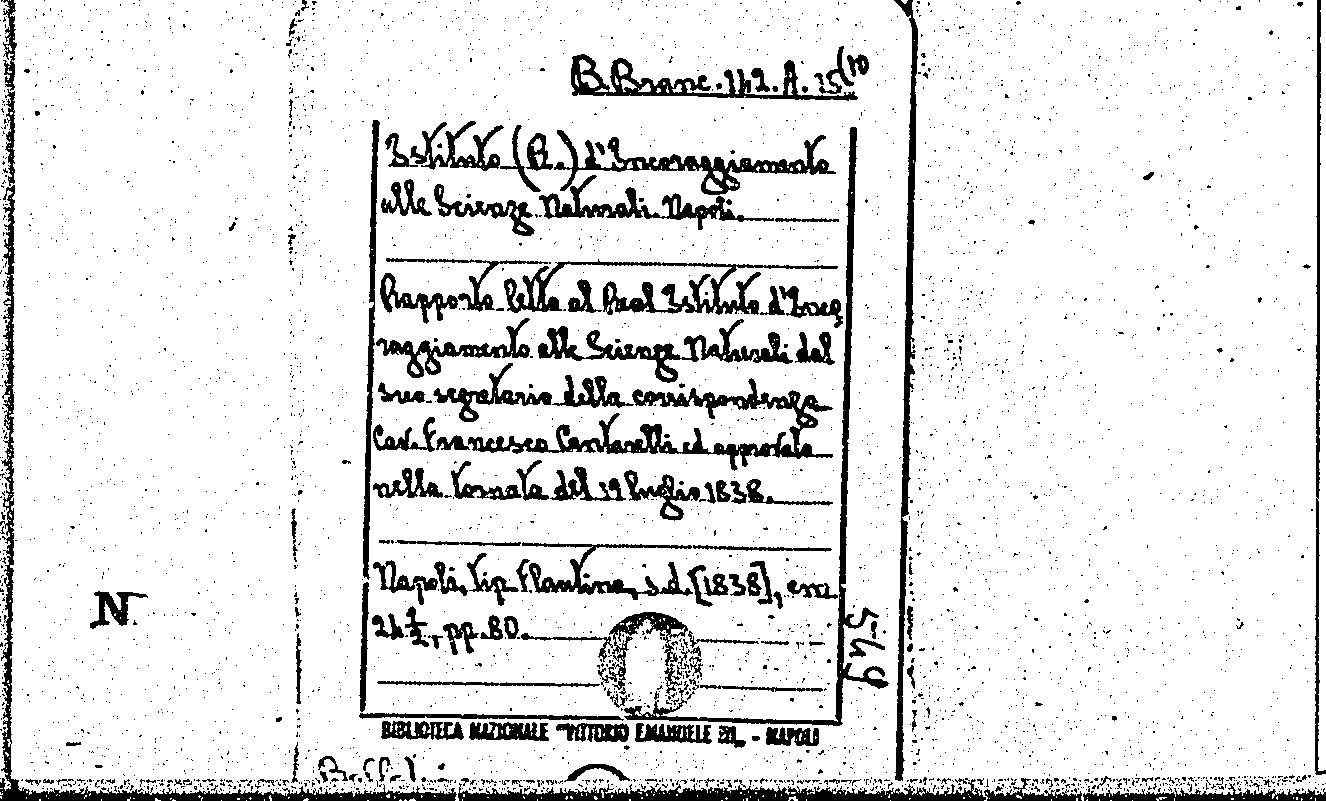 B. Branc. 142. A. 35(10
Istituto (R.) d'Incoraggiamento
alle Scienze Naturali. Napoli.
Rapporto letto al Real Istituto d'Inco
raggiamento alle Scienze Naturali dal
suo segretario della corrispondenza
Cav. Francesco Cantarelli ed approvato
nella tornata del 19 luglio 1838.
Napoli, tip. Plautina, s.d. [1838], cm.
24 1/2, pp. 80.
549
N
BIBLIOTECA NAZIONALE "VITTORIO EMANUELE III" - NAPOLI